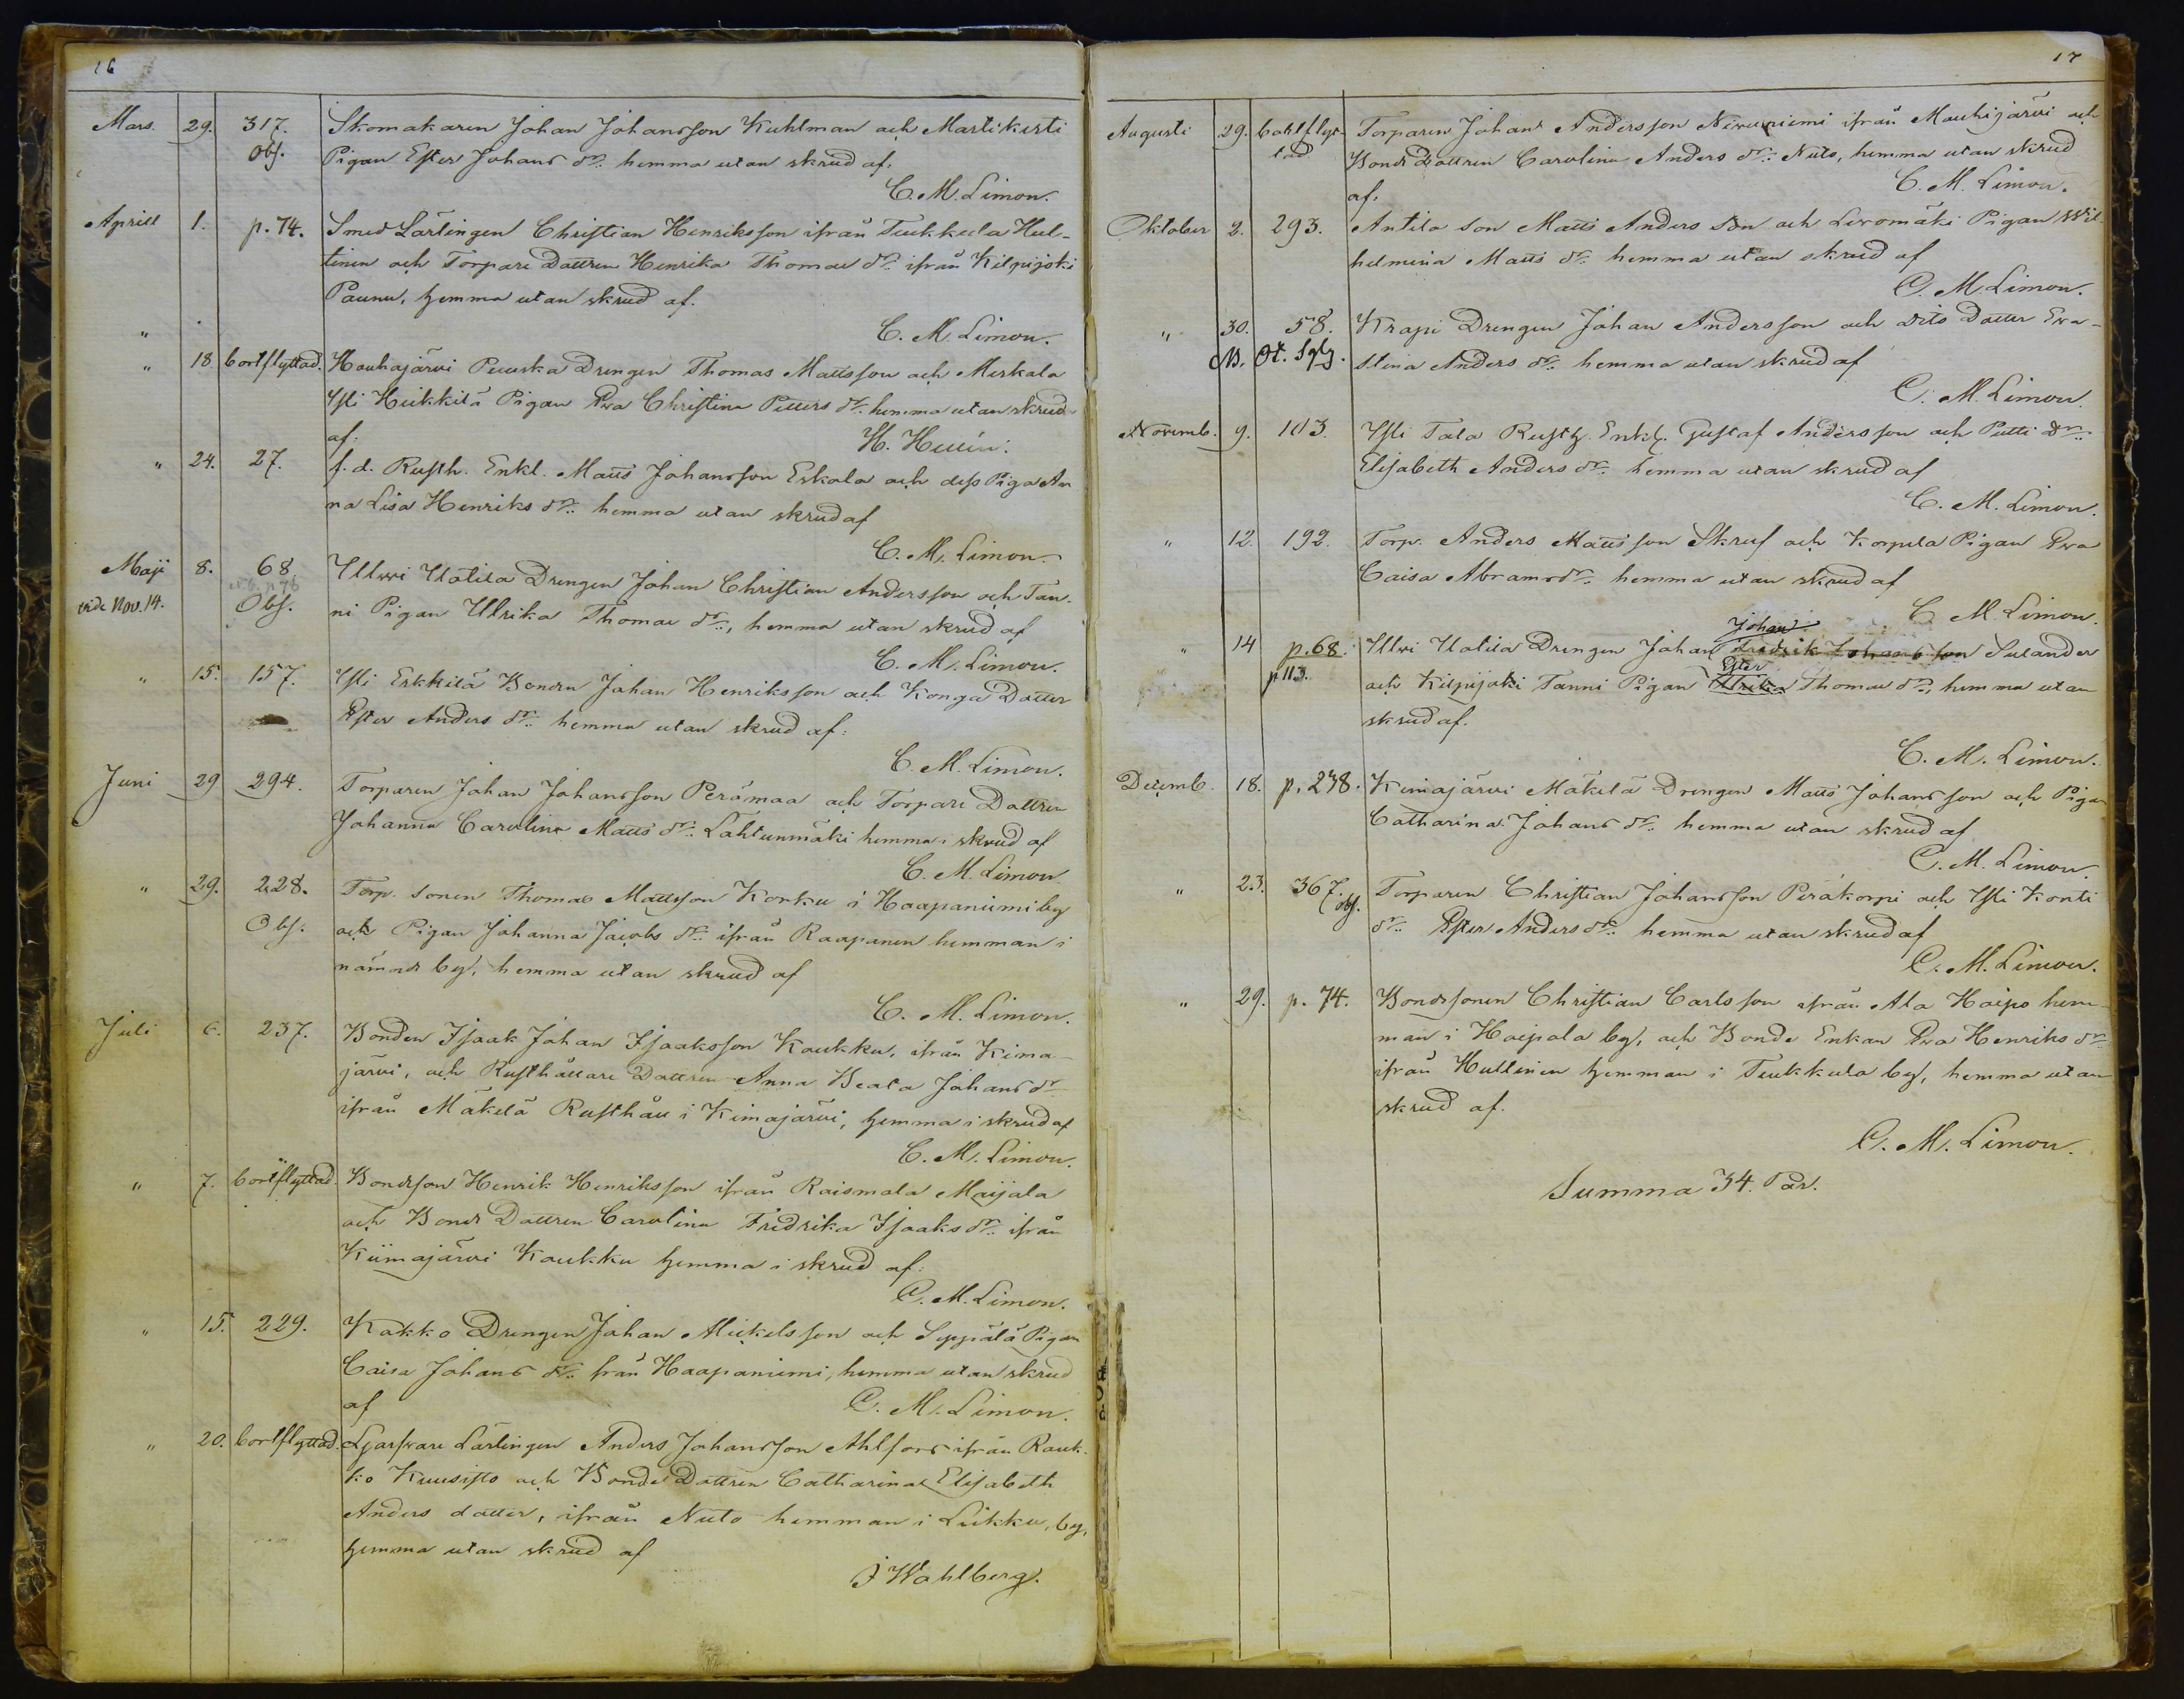 16
Mars. 29. 317. Skomakaren Johan Johansson Kuhlman och Martikerti
Obs. Pigan Ester Johans dr. hemma utan skrud af.
C. M. Limon.
Aprill 1. p. 74. Smed Lärlingen Christian Henriksson ifrån Teukkula Hul-
tinen och Torpare Dottren Henrika Thomae dr. ifrån Kilpijoki
Paunu, hemma utan skrud af.
" C. M. Limon.
" 18 bortflyttad. Houhajärvi Peuska Drengen Thomas Mattsson och Merkala
Yli Heikkilä Pigan Eva Christina Petters dr. hemma utan skrud
af. H.
" 24. 27. f. d. Rusth. Enkl. Matts Johansson Eskola och dess Piga An
na Lisa Henriks dr. hemma utan skrud af
C. M. Limon.
Maji 8. 68. Illwi Uotila Drengen Johan Christian Andersson och Tan-
vide Nov. 14. Obs. ni Pigan Ulrika Thomae dr., hemma utan skrud af
C. M. Limon.
" 15. 157. Yli Erkkilä Bonden Johan Henriksson och Konga Dotter
Ester Anders dr. hemma utan skrud af:
C. M. Limon.
Juni 29 294. Torparen Johan Johansson Perämaa och Torpare Dottren
Johanna Carolina Matts dr. Lahtunmäki hemma i skrud af
C. M. Limon
" 29. 228. Torp. sonen Thomas Mattsson Korku i Haapaniemi by
Obs. och Pigan Johanna Jacobs dr. ifrån Raapanen hemman i
nämnde by, hemma utan skrud af
C. M. Limon.
Juli 6. 237. Bonden Isaak Johan Isaaksson Kaukku, ifrån Kima-
järvi, och Rusthållare Dottren Anna Beata Johans dr
ifrån Mäkelä Rusthåll i Kimajärvi, hemma i skrud af
C. M. Limon.
" 7. bortflyttad. Bondsson Henrik Henriksson ifrån Raismala Maijala
och Bonde Dottren Carolina Fredrika Isaaks dr. ifrån
Kiimajärvi Kaukku hemma i skrud af.
C. M. Limon.
" 15. 229. Kakko Drengen Johan Mickelsson och Seppälä Pigan
Caisa Johans dr. från Haapaniemi, hemma utan skrud
af C. M. Limon.
" 20. bortflyttad. Garfvare Lärlingen Anders Johansson Ahlfors ifrån Rauk-
ko Kuusisto och Bonde Dottren Catharina Elisabeth
Anders dotter, ifrån Nuto hemman i Liikku by,
hemma utan skrud af
J Wahlberg.
17
Augusti 29. bortflyt- Torparen Johan Andersson ifrån Mouhijärvi och
tad Bonde dottren Carolina Anders dr. Nuto, hemma utan skrud
af. C. M. Limon.
Oktober 2. 293. Antila son Matts Anders son och Livomäki Pigan Wil
helmina Matts dr. hemma utan skrud af
C. M. Limon.
" 30. 58. Krapi Drengen Johan Andersson och dito Dotter Eva
Stina Anders dr. hemma utan skrud af
C. M. Limon.
Novemb. 9. 103. Yli Tala Rusth. Enkl. Gustaf Andersson och Putti dr.
Elisabeth Anders dr. hemma utan skrud af
C. M. Limon.
" 12. 192. Torp. Anders Mattsson Skruf och Korpela Pigan Eva
Caisa Abrams dr. hemma utan skrud af
C M. Limon.
Johan
" 14 p. 68. Illwi Uotila Drengen Johan Fredrik Johansson Sulander
Ester
p 113. och Kilpijoki Tanni Pigan Ulrika Thomae dr., hemma utan
skrud af.
C. M. Limon.
Decemb. 18. p. 238. Kimajärvi Mäkelä Drengen Matts Johansson och Piga
Catharina Johans dr. hemma utan skrud af
C. M. Limon.
" 23. 367. obs. Torparen Christian Johansson Peräkorpi och Yli Konti
dr. Ester Anders dr. hemma utan skrud af
C. M. Limon.
" 29. p. 74. Bondsonen Christian Carlsson ifrån Ala Haipo hem-
man i Hoipola by, och Bonde Enkan Eva Henriks dr.
ifrån Hultinen hemman i Teukkula by, hemma utan
skrud af.
C. M. Limon.
Summa 34. Par.